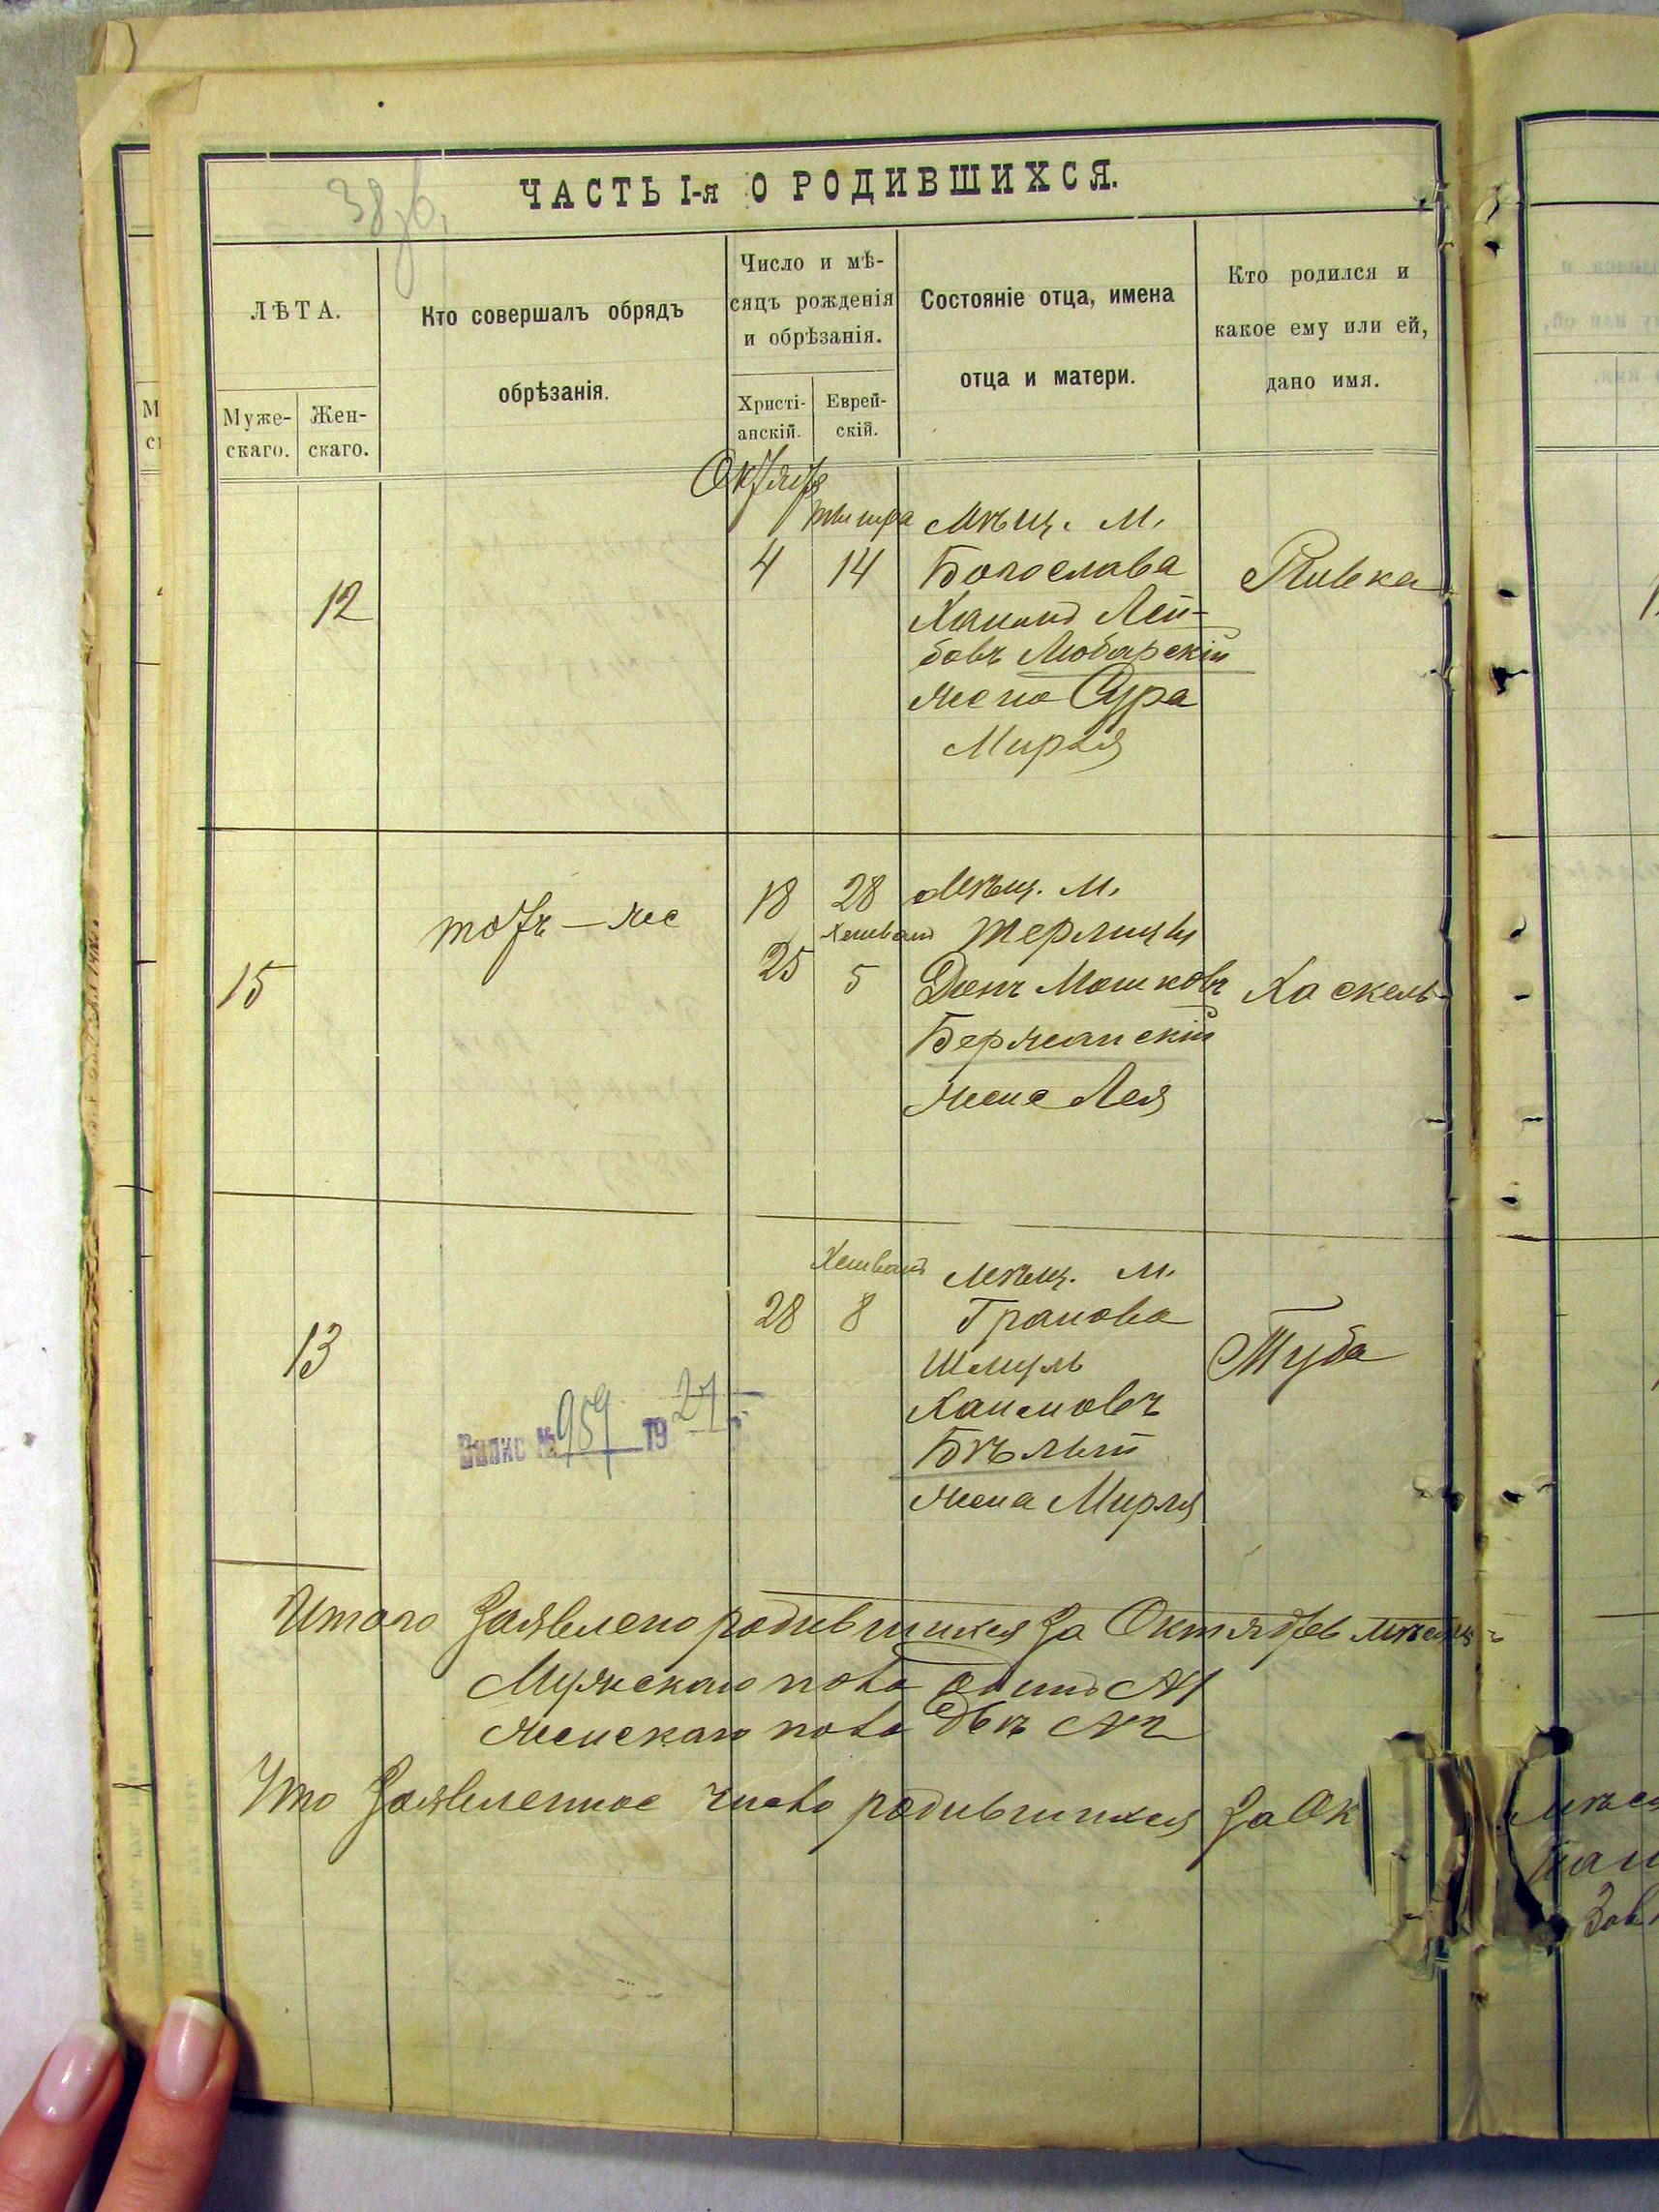 ЧАСТЬ I-я О РОДИВШИХСЯ.
ЛѢТА.
Муже-
скаго.
Жен-
скаго.
Кто совершалъ обрядъ
обрѣзанія.
Число и мѣ-
сяцъ рожденія
и обрѣзанія.
Христі-
анскій.
Еврей-
скій.
Состояніе отца, имена
отца и матери.
Кто родился и
какое ему или ей,
дано имя.
Октябр
тишра
12
4
14
Мѣщ. М.
Богослава
Хаимъ Лей-
бовъ Любарскій
жена Сура
Мирля
Ривка
15
тотъ-же
18
28
Хешванъ
25
5
Мѣщ. М.
Терлицы
Донъ Мошковъ
Бержанскій
жена Лея
Хаскель
13
Хешванъ
28
8
Мѣщ. М.
Гранова
Шмуль
Хаимовъ
Бѣлый
жена Мирля
Туба
Випис № 959 19 27 р.
Итого заявлено родившихся за Октябрь мѣсяц
Мужскаго пола одинъ №1
женскаго пола двѣ №2
Что заявленное число родившихся за Ок